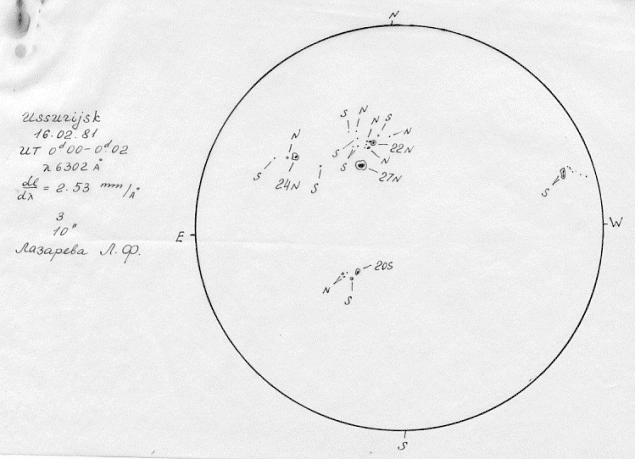 N
Ussurijsk
16.02.81
UT 0ᵈ00-0ᵈ02
λ 6302 Å
dl/dλ = 2.53 mm/Å
3
10"
Лазарева Л.Ф.
S N S
N N
N S S 22N
N
S 24N S 27N
S
E
W
20S
N S
S